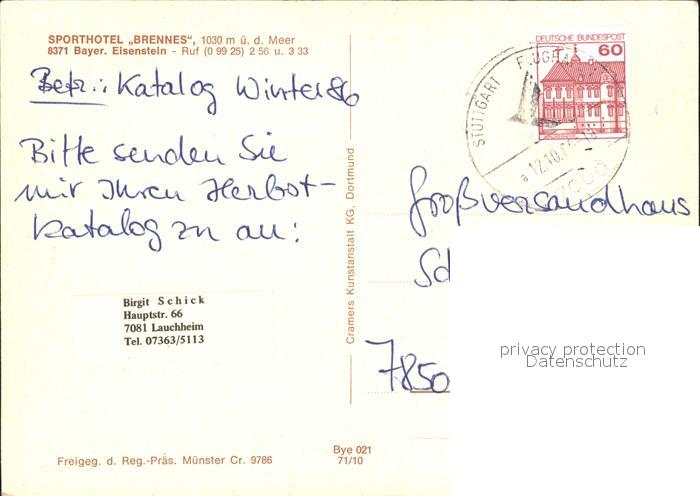 SPORTHOTEL „BRENNES", 1030 m ü. d. Meer
8371 Bayer. Eisenstein - Ruf (0 99 25) 2 56 u. 3 33
Betr.: Katalog Winter 86
Bitte senden Sie
mir Ihren Herbst-
katalog zu an:
Birgit Schick
Hauptstr. 66
7081 Lauchheim
Tel. 07363/5113
Freigeg. d. Reg.-Präs. Münster Cr. 9786
Bye 021
71/10
Cramers Kunstanstalt KG, Dortmund
DEUTSCHE BUNDESPOST
60
STUTTGART
12.10.
Großversandhaus
7850
privacy protection
Datenschutz